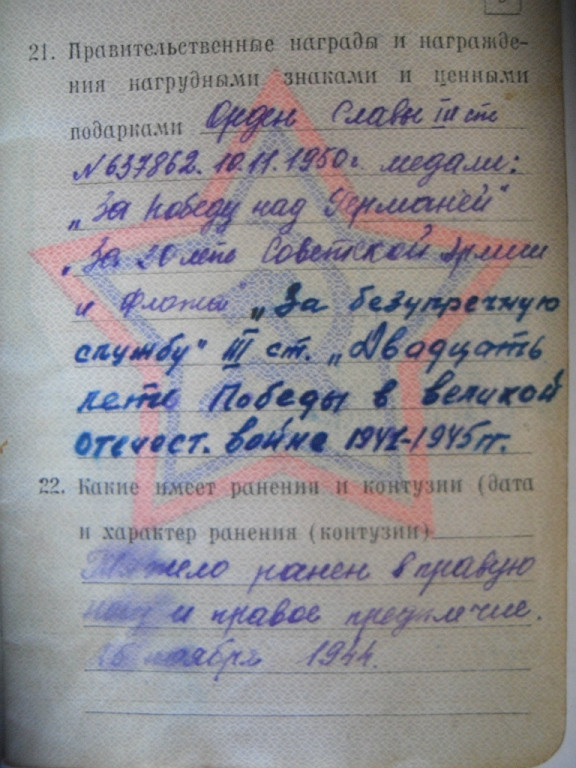 21. Правительственные награды и награжде-
ния нагрудными знаками и ценными
подарками Орден Славы III ст
№637862. 10.11.1950г. медали:
„За победу над Германей"
„За 20 лет Советской Армии
и флоты" „За безупречную
службу" III ст. „Двадцать
лет Победы в великой
отечест. войне 1941-1945гг.
22. Какие имеет ранения и контузии (дата
и характер ранения (контузии)
Тяжело ранен в правую
и правое предплечие.
ноября 1944.